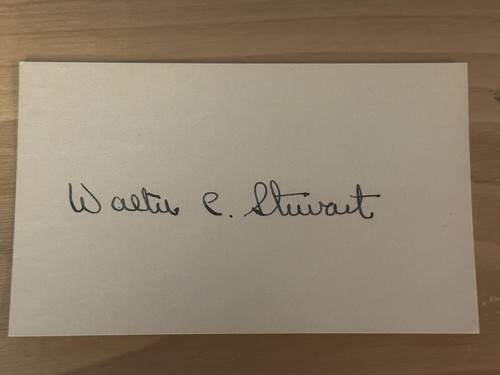 Walter C. Stewart